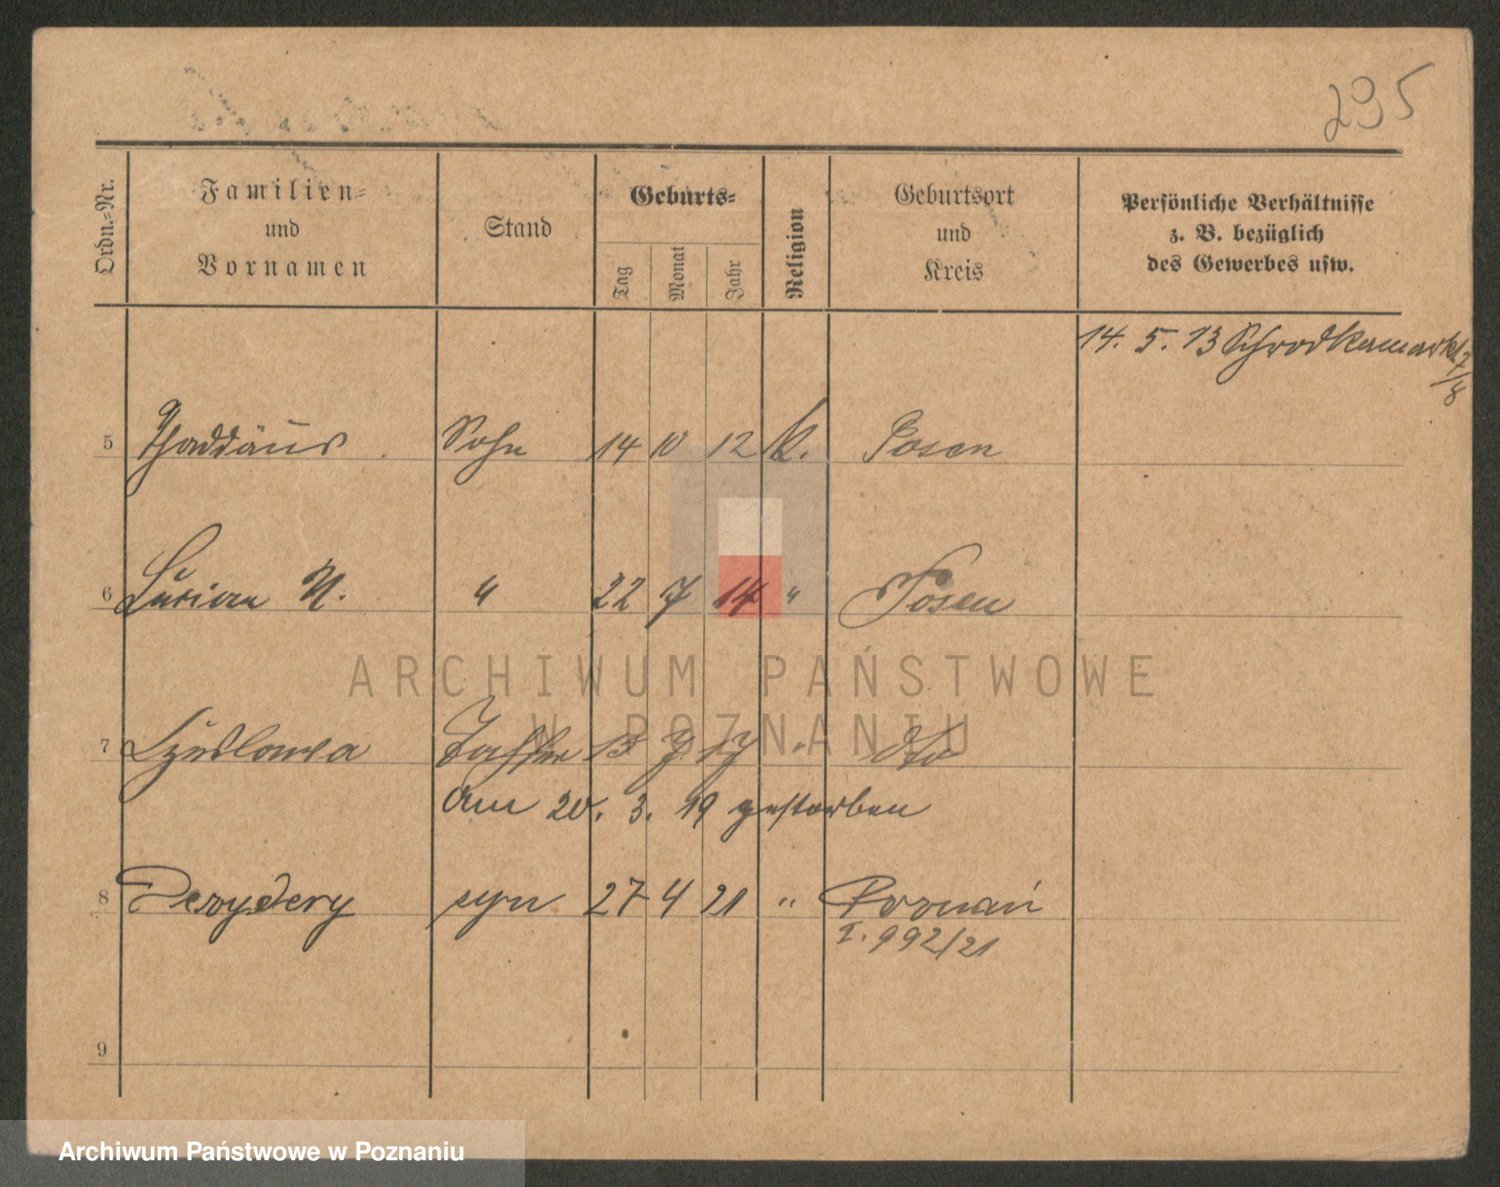 295
Ordn.=Nr.
Familien=
und
Vornamen
Stand
Geburts=
Tag
Monat
Jahr
Religion
Geburtsort
und
Kreis
Persönliche Verhältnisse
z. B. bezüglich
des Gewerbes usw.
14. 5. 13 Schrodkamarkt 7/8
5 Thaddäus Sohn 14 10 12 K. Posen
6 Lucian N. " 22 7 14 " Posen
7 Czeslawa Tochter 13 7 17 " dto
am 20. 3. 19 gestorben
8 Dezydery syn 27 4 21 " Poznań
I. 992/21
9
ARCHIWUM PAŃSTWOWE
W POZNANIU
Archiwum Państwowe w Poznaniu